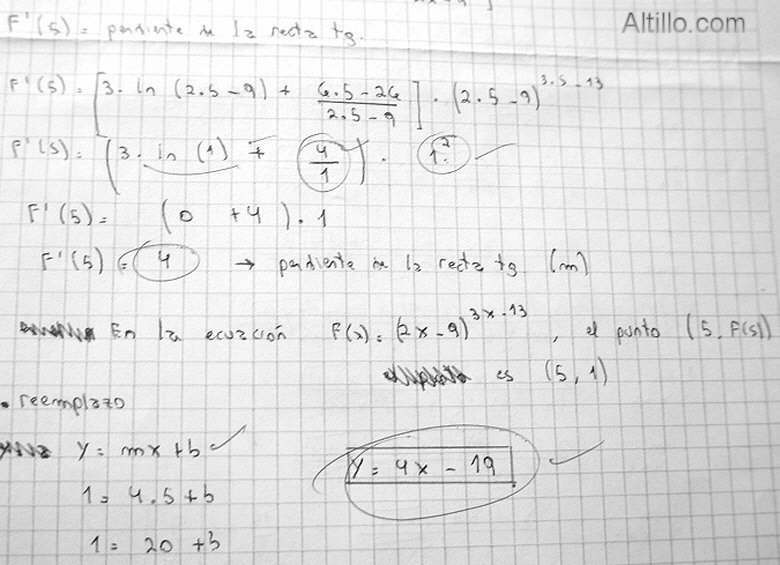 Altillo.com
F'(5) = pendiente de la recta tg.
F'(5) = [3. ln (2.5 - 9) + (6.5 - 26)/(2.5 - 9)] . (2.5 - 9)^(3.5 - 13)
F'(5) = (3. ln (1) + 4/1) . 1^2
F'(5) = (0 + 4) . 1
F'(5) = 4 → pendiente de la recta tg (m)
En la ecuación F(x) = (2x - 9)^(3x - 13), el punto (5, F(5))
es (5, 1)
• reemplazo
y = mx + b
1 = 4.5 + b
1 = 20 + b
y = 4x - 19